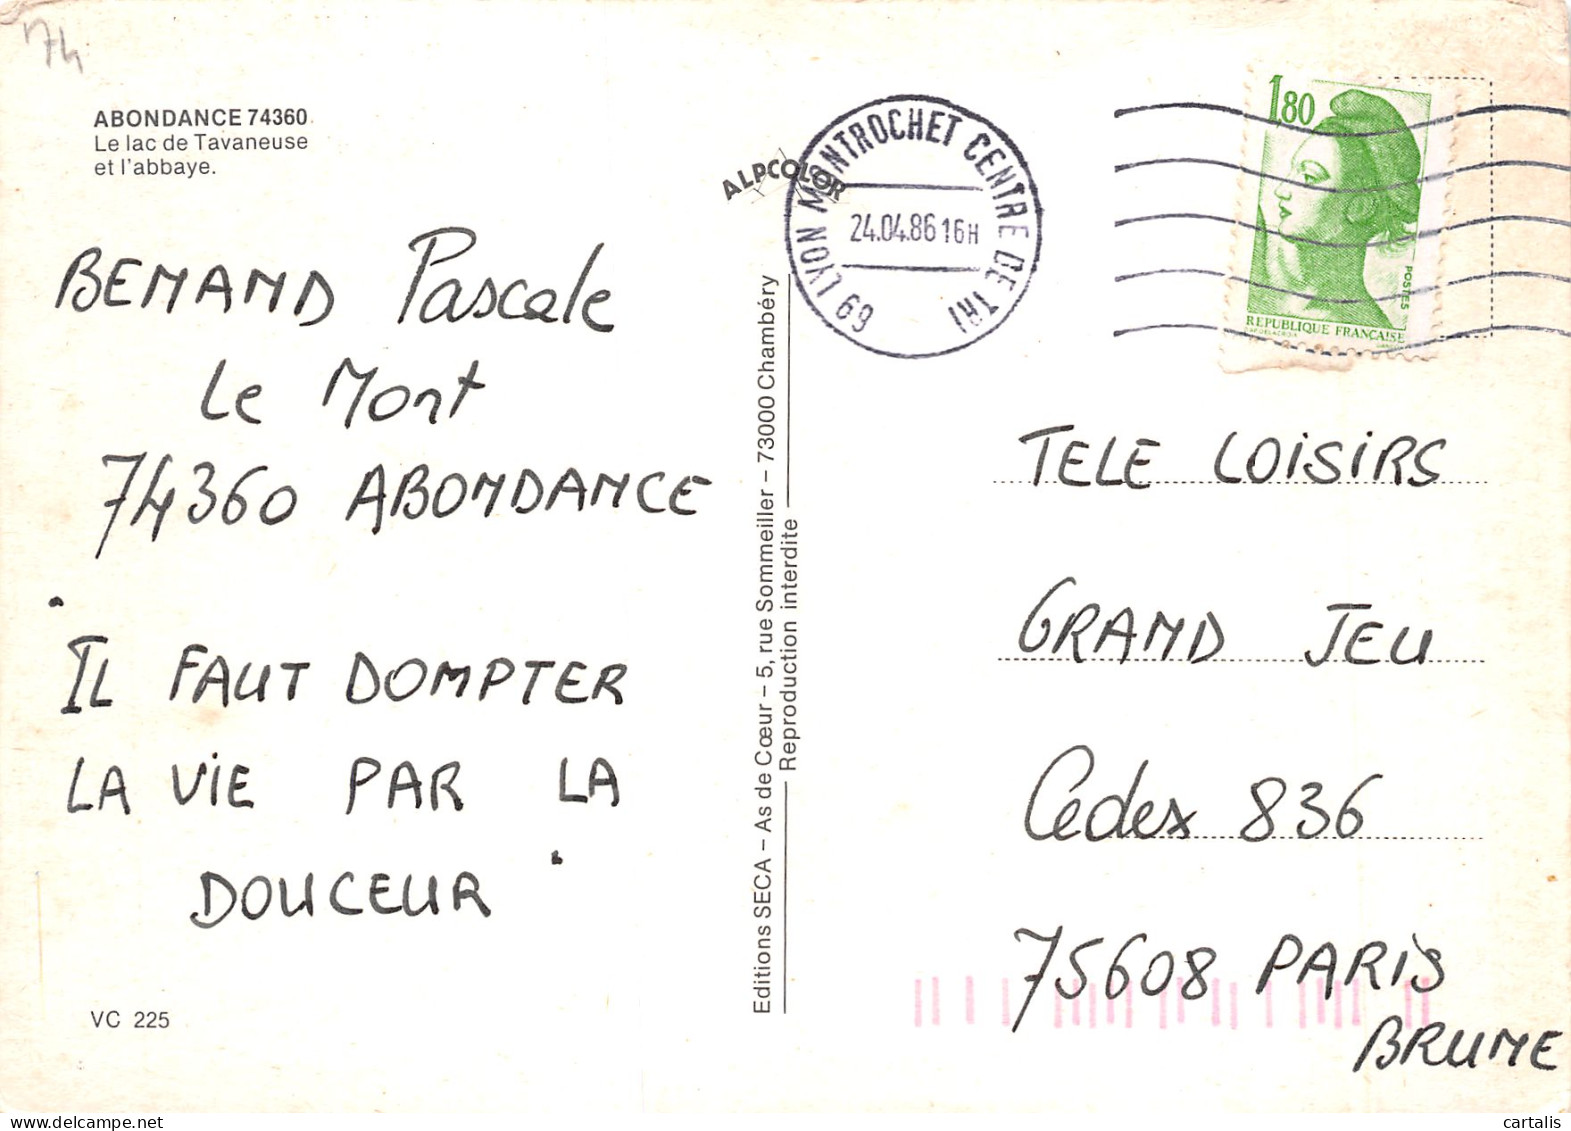 74
ABONDANCE 74360
Le lac de Tavaneuse
et l'abbaye.
BENAND Pascale
Le Mont
74360 ABONDANCE
IL FAUT DOMPTER
LA VIE PAR LA
DOUCEUR
VC 225
Editions SECA – As de Cœur – 5, rue Sommeiller – 73000 Chambéry
Reproduction interdite
ALPCOLOR
69 LYON MONTROCHET CENTRE DE TRI
24.04.86 16H
1,80
POSTES
REPUBLIQUE FRANÇAISE
TELE LOISIRS
GRAND JEU
Cedex 836
75608 PARIS
BRUNE
cartalis